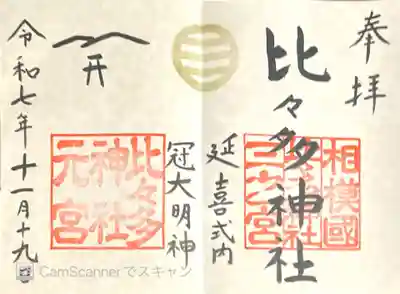 奉拝
比々多神社
相模國
三之宮
延喜式内
冠大明神
比々多
神社
元宮
令和七年十一月十九日
CamScannerでスキャン